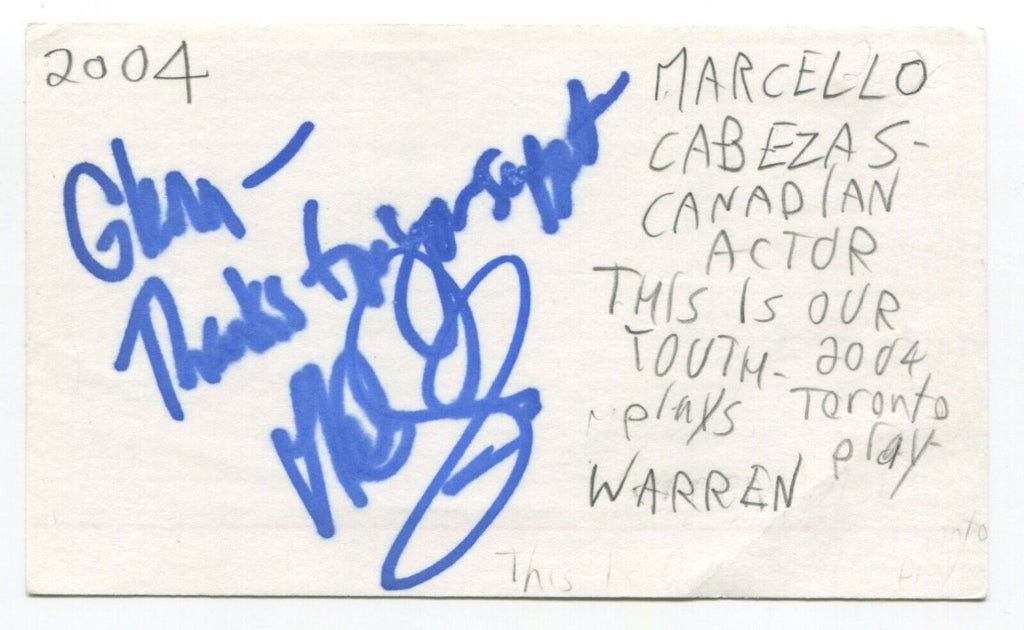 2004
Glenn -
Thanks for your support
MARCELLO
CABEZAS-
CANADIAN
ACTOR
THIS IS OUR
YOUTH- 2004
plays Toronto
play-
WARREN
This